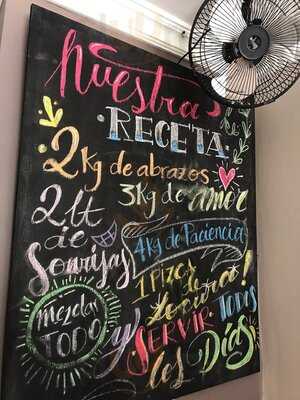 nuestra
RECETA
2Kg de abrazos
3Kg de amor
2lt de Sonrisas
4Kg de Paciencia
1 Pizca de locura!
mezclar TODO
y SERVIR TODOS
los Días